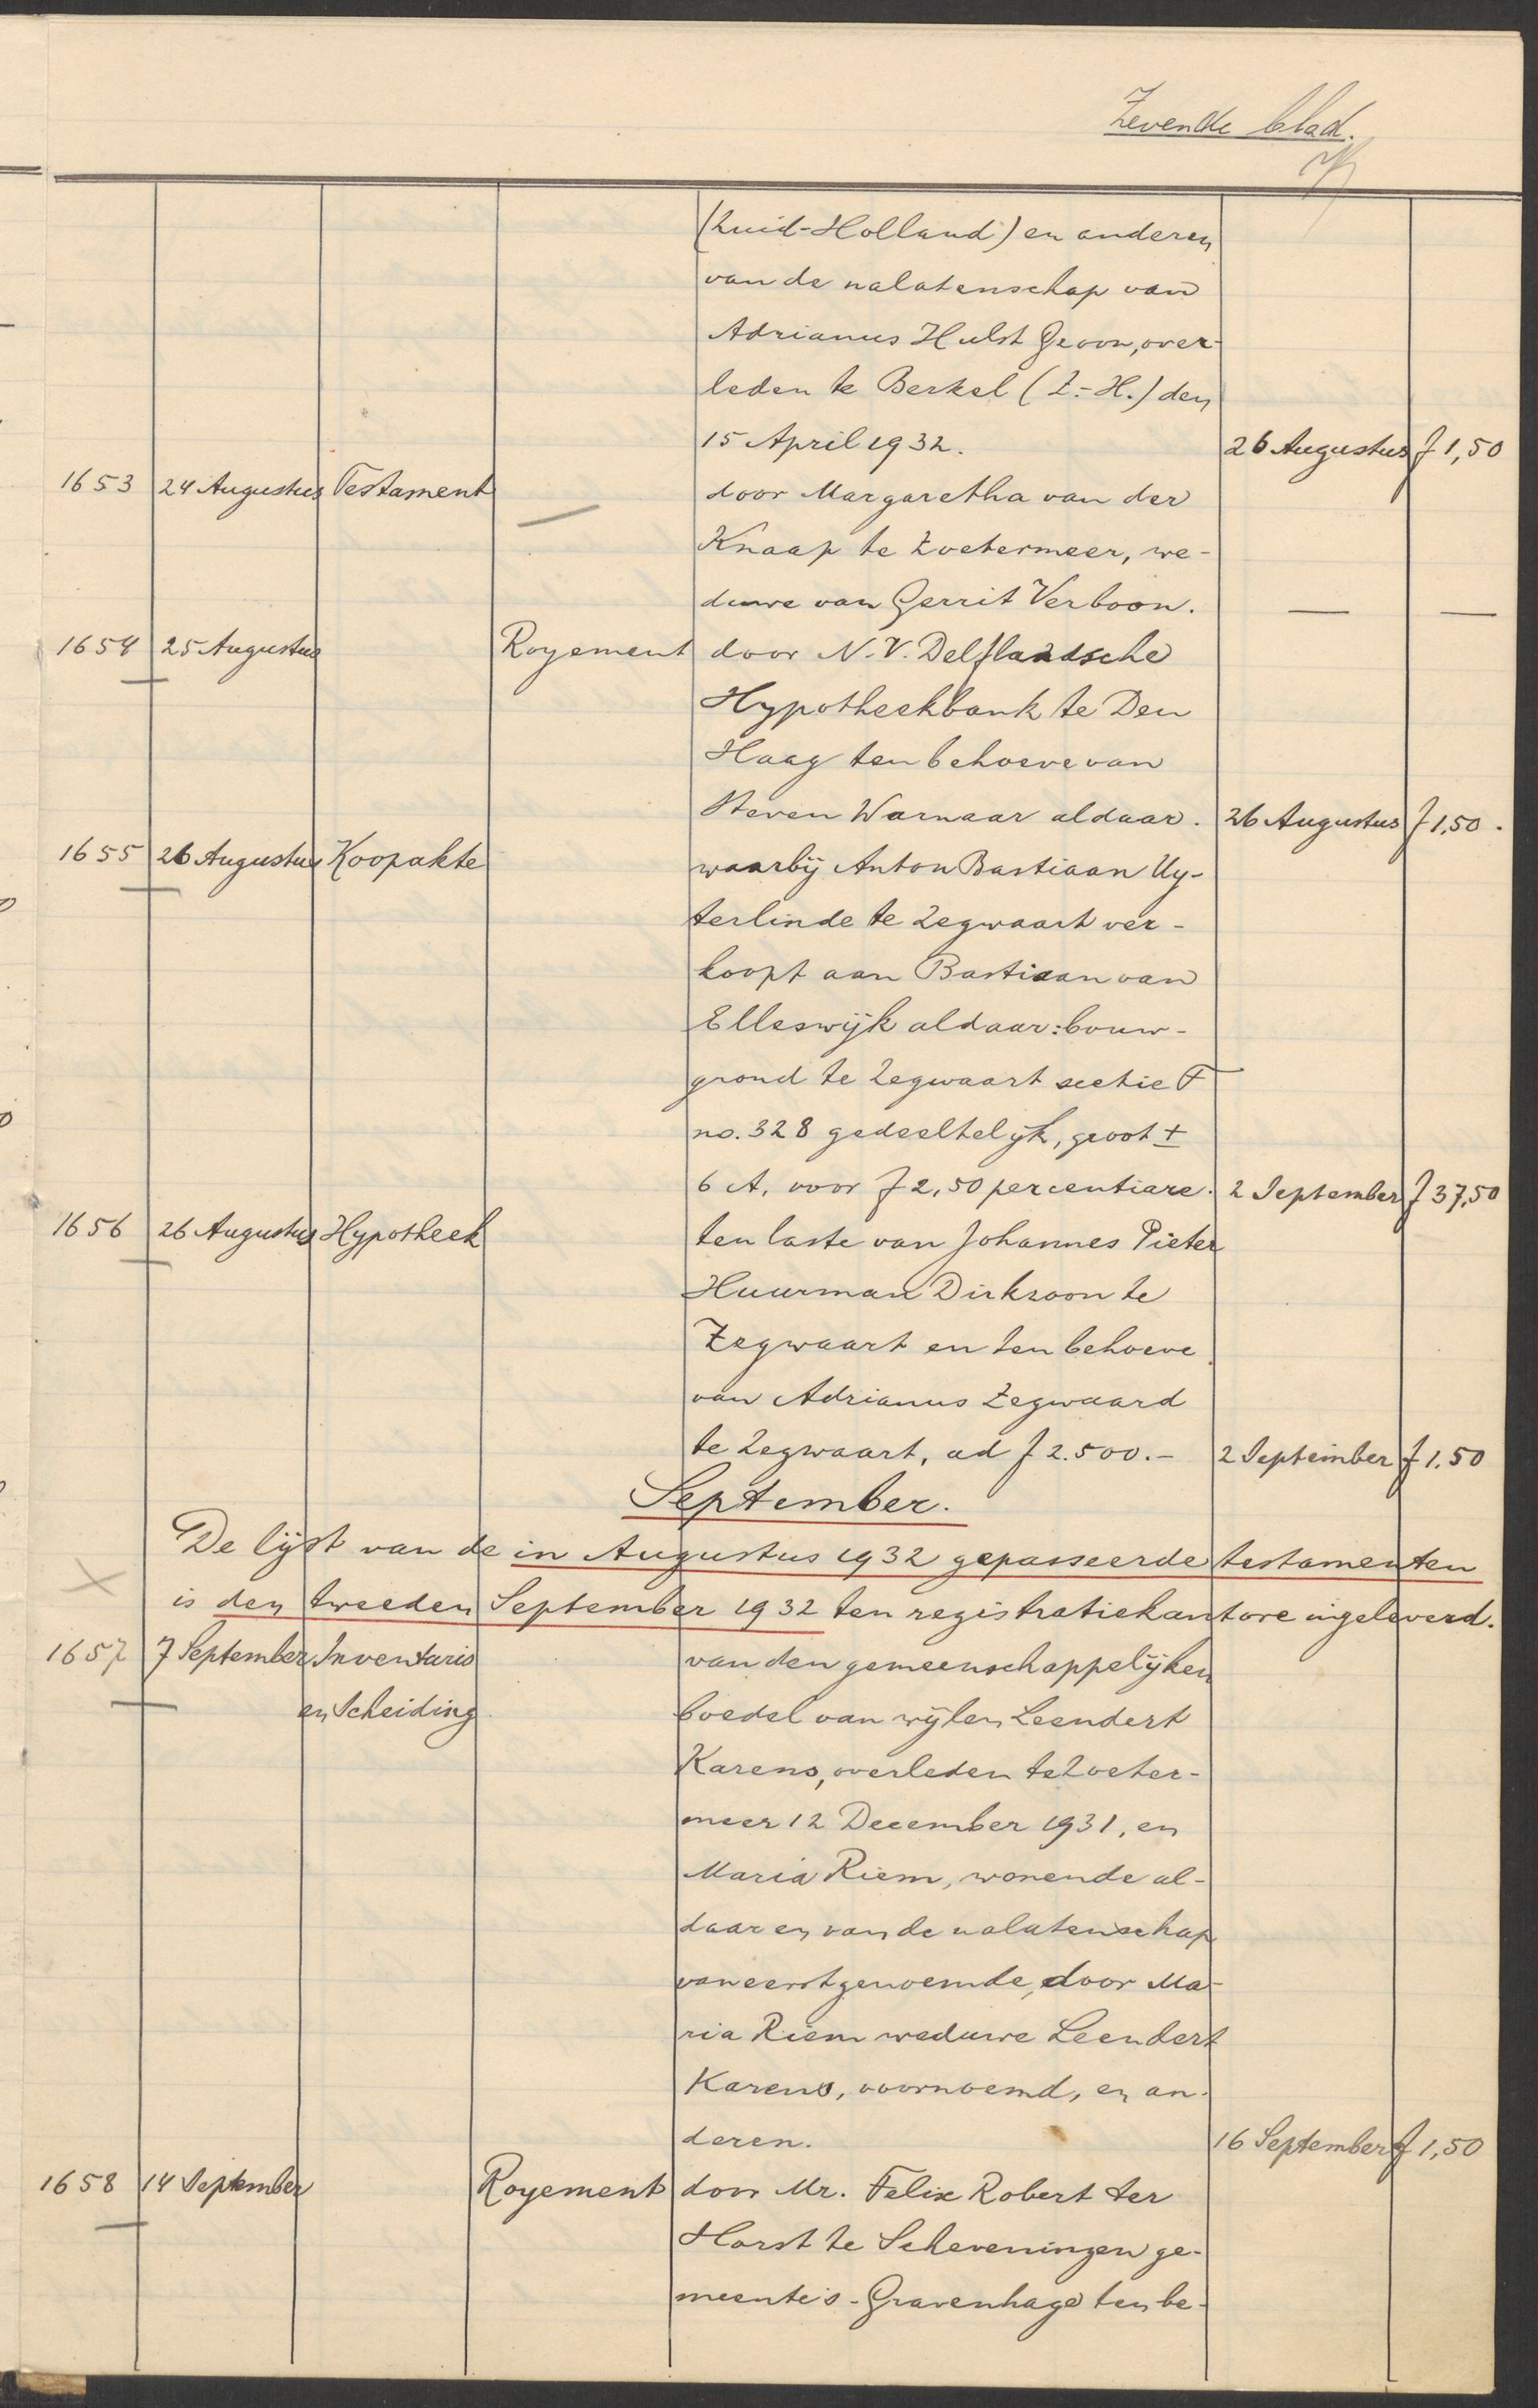 Zevende blad.
(Zuid-Holland) en anderen
van de nalatenschap van
Adrianus Hulst Gzoon, over-
leden te Berkel (Z.-H.) den
15 April 1932. 26 Augustus f 1,50
1653 24 Augustus Testament — door Margaretha van der
Knaap te Zoetermeer, we-
duwe van Gerrit Verboon. — —
1654 25 Augustus Royement door N.V. Delflandsche
Hypotheekbank te Den
Haag ten behoeve van
Steven Warnaar aldaar. 26 Augustus f 1,50.
1655 26 Augustus Koopakte waarbij Anton Bastiaan Uy-
terlinde te Zegwaart ver-
koopt aan Bastiaan van
Elleswijk aldaar: bouw-
grond te Zegwaart sectie F
no. 328 gedeeltelijk, groot ±
6 A. voor f 2,50 per centiare. 2 September f 37,50
1656 26 Augustus Hypotheek ten laste van Johannes Pieter
Huurman Dirkzoon te
Zegwaart en ten behoeve
van Adrianus Zegwaard
te Zegwaart, ad f 2.500.- 2 September f 1.50
September.
De lijst van de in Augustus 1932 gepasseerde testamenten
is den tweeden September 1932 ten registratiekantore ingeleverd.
1657 7 September Inventaris van den gemeenschappelijken
en Scheiding boedel van wijlen Leendert
Karens, overleden te Zoeter-
meer 12 December 1931, en
Maria Riem, wonende al-
daar en van de nalatenschap
van eerstgenoemde, door Ma-
ria Riem weduwe Leendert
Karens, voornoemd, en an-
deren. 16 September f 1,50
1658 14 September Royement door Mr. Felix Robert ter
Horst te Scheveningen ge-
meente 's-Gravenhage ten be-